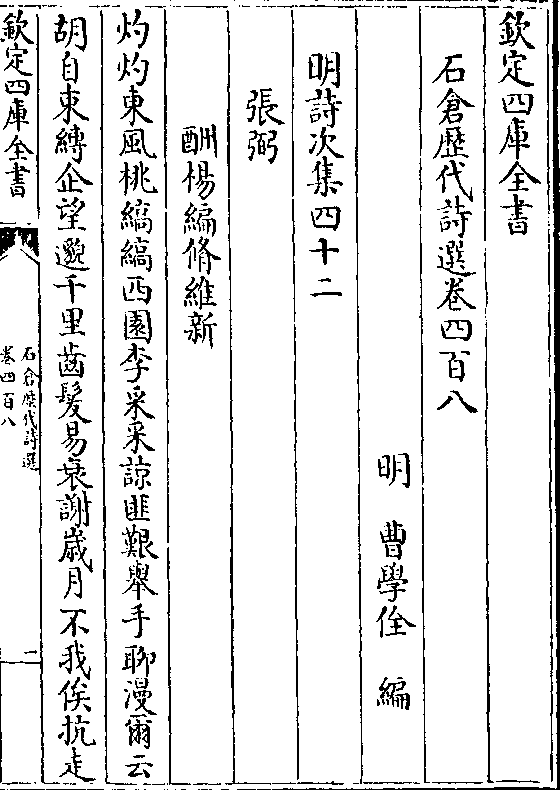 欽定四庫全書
石倉歴代詩選卷四百八
明 曹學佺 編
明詩次集四十二
張弼
酬楊編脩維新
灼灼東風桃縞縞西園李采采諒匪艱舉手聊漫爾云
胡自束縛企望邈千里齒髮易衰謝歳月不我俟抗走
欽定四庫全書
石倉歴代詩選
卷四百八
二